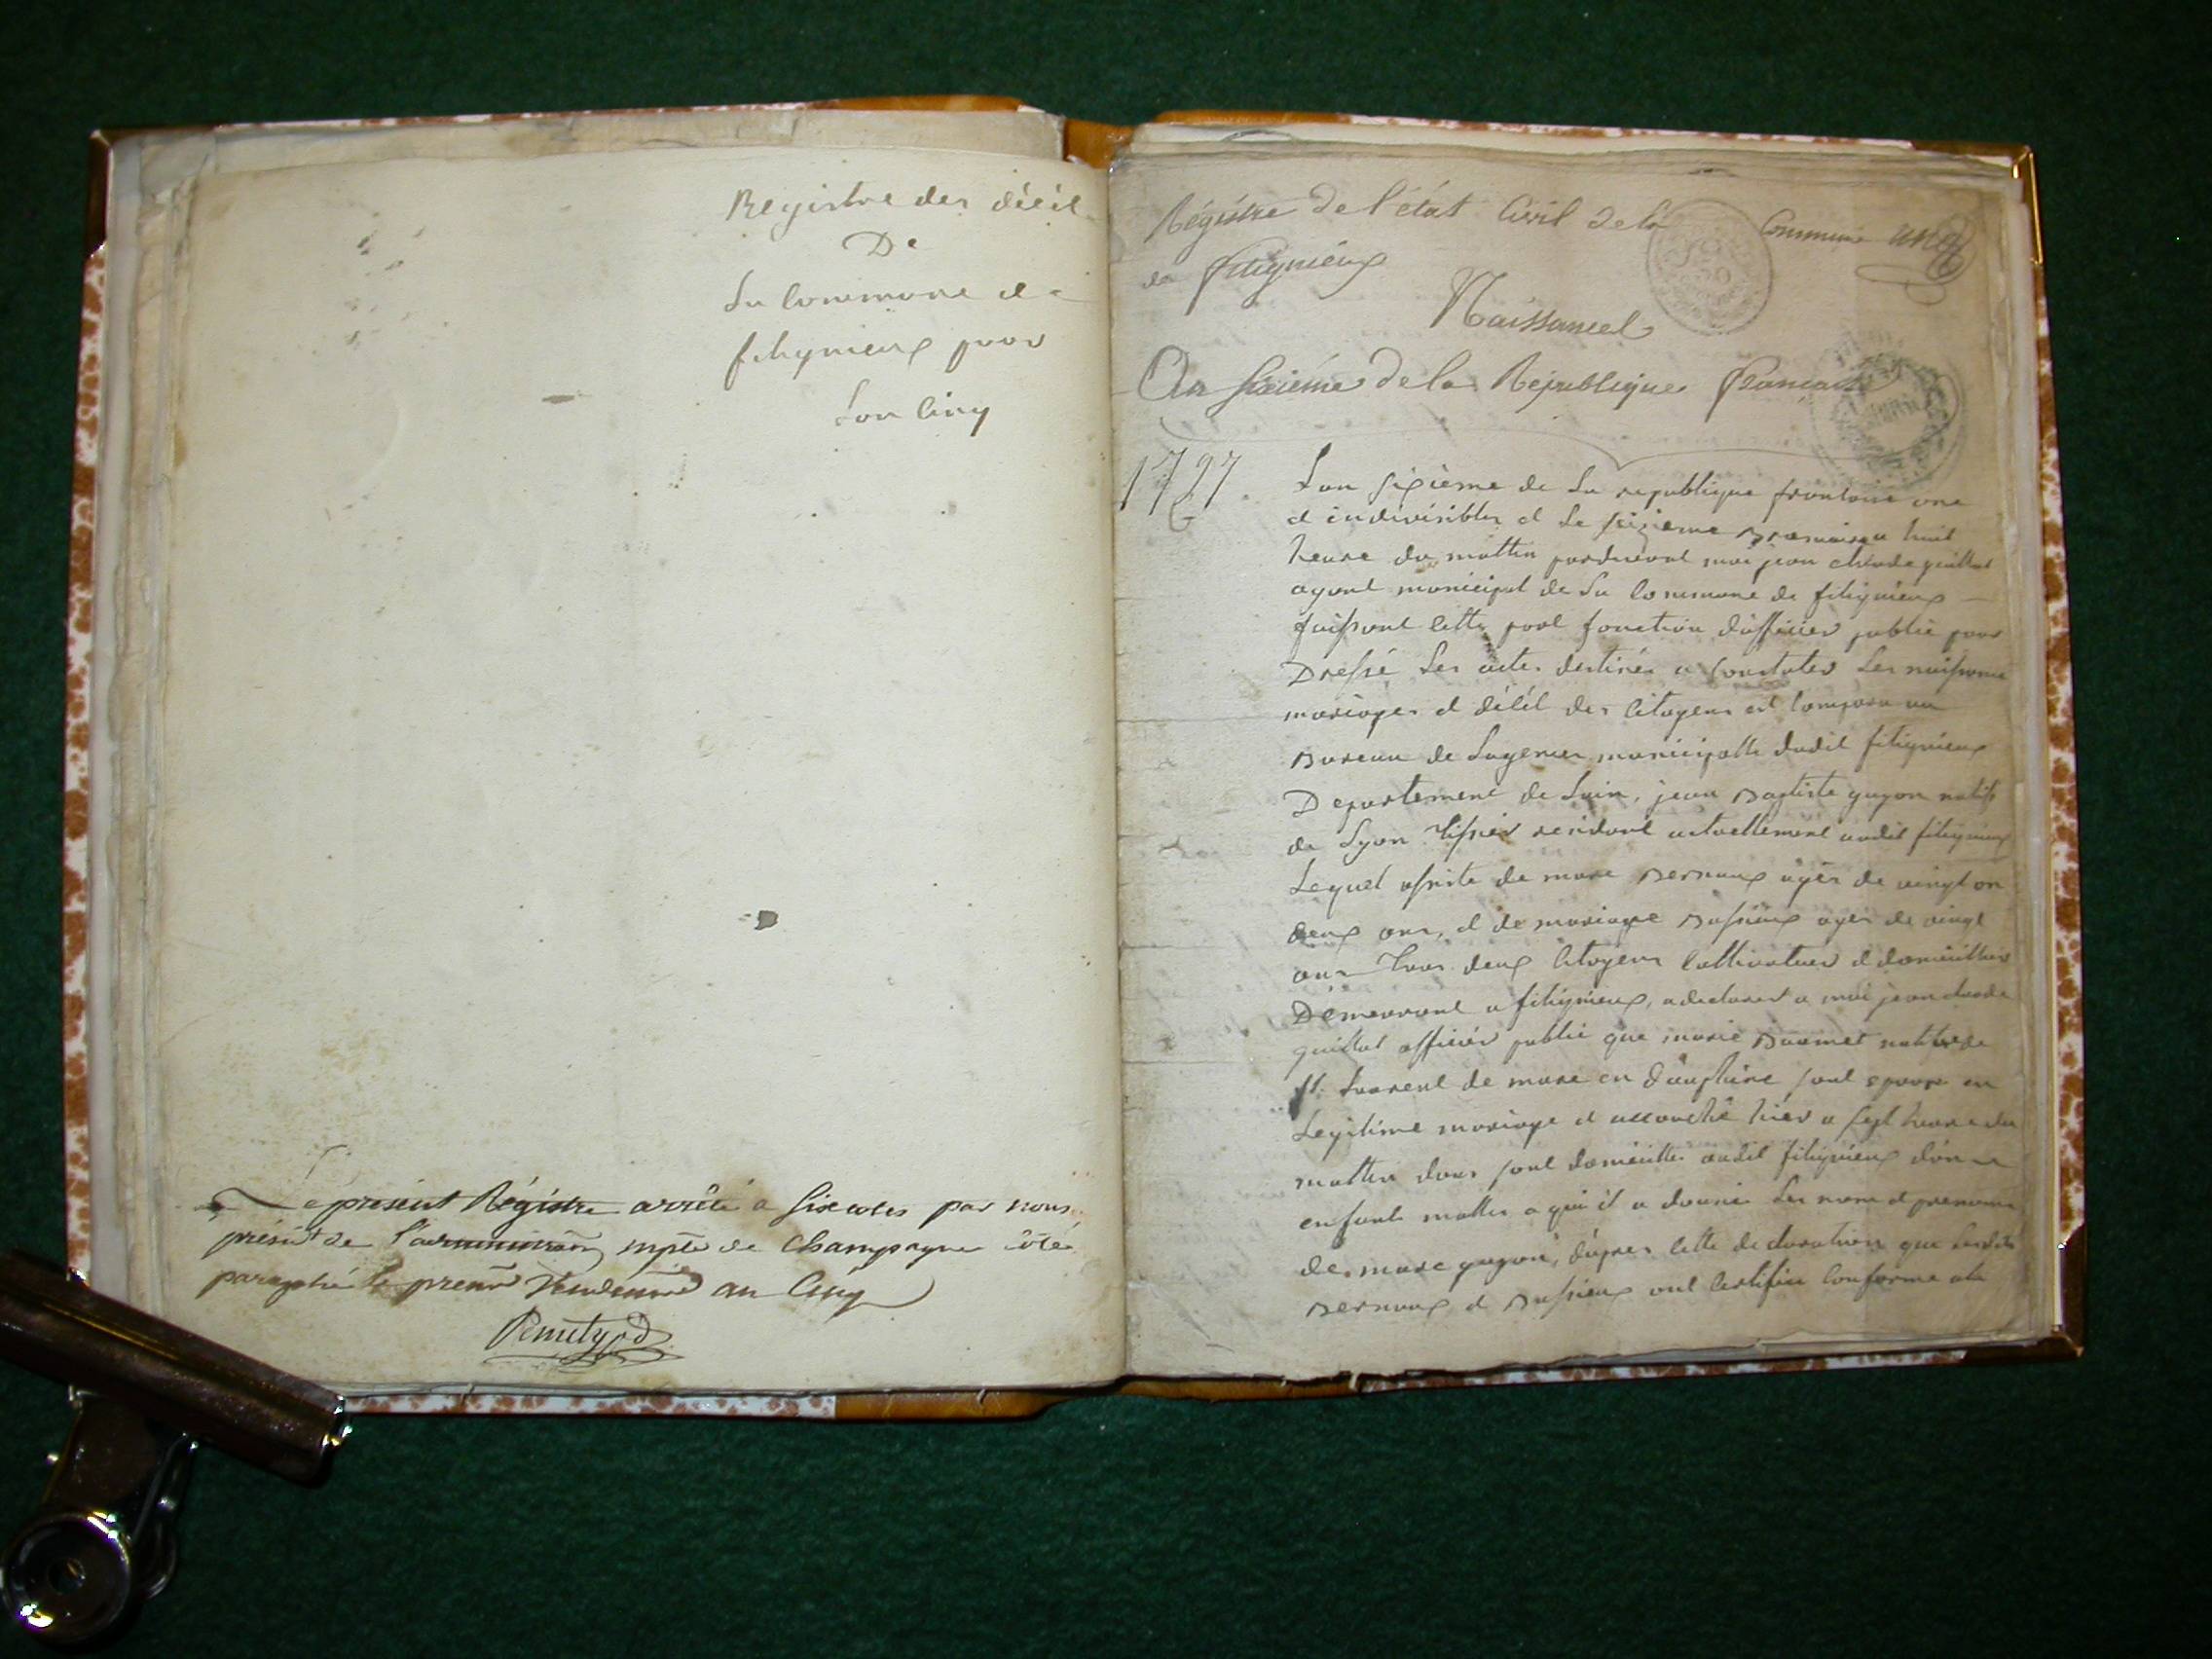 Registre des décét
De
La Commune de
fitignieux pour
Lan Cinq
Le présent Régistre arrêté a Six cotes par nous
présid.t de l'administraõn mple de Champagne côté
paraphé le premr Vendemre an Cinq
Régistre de l'état Civil de la Commune une
de fitignieux
Naissances
An sixième de la République française
1797. Lan sixieme de La republique francoise une
et indivisibles et Le seizieme Bromaire a huit
heure du mattin pardevant moi jean claude guillot
agant municipal de La Commune de fitignieux
faissant cette pool fonction d'officier public pour
Dressé Les actes destinés a Constater Les naissance
mariages et décét des Citoyens est comparu au
Bureau de Lagence municipalle dudit fitignieux
Departement de Lain, jean Baptiste guyon natif
de Lyon tissier residant actuellement audit fitignieux
Lequel assisté de marc Bernaux agés de vingt on
deux ans, et de mariane Bassieux agés de vingt
ans tous deux Citoyens Cultivateur et domicilliés
Demeurant a fitignieux, a declarer a moi jean claude
guillot officier public que marie Baumet native de
st. Laurent de mure en dauphiné sont epouse en
Legitime mariage et accouché hier a sept heure du
mattin dans sont domicille audit fitignieux d'un
enfant malles a qui il a donné Les nom et prenoms
de marc guyon, d'apres cette declaration que Lesdits
Bernaux et Bassieux ont Certifié Conforme a la